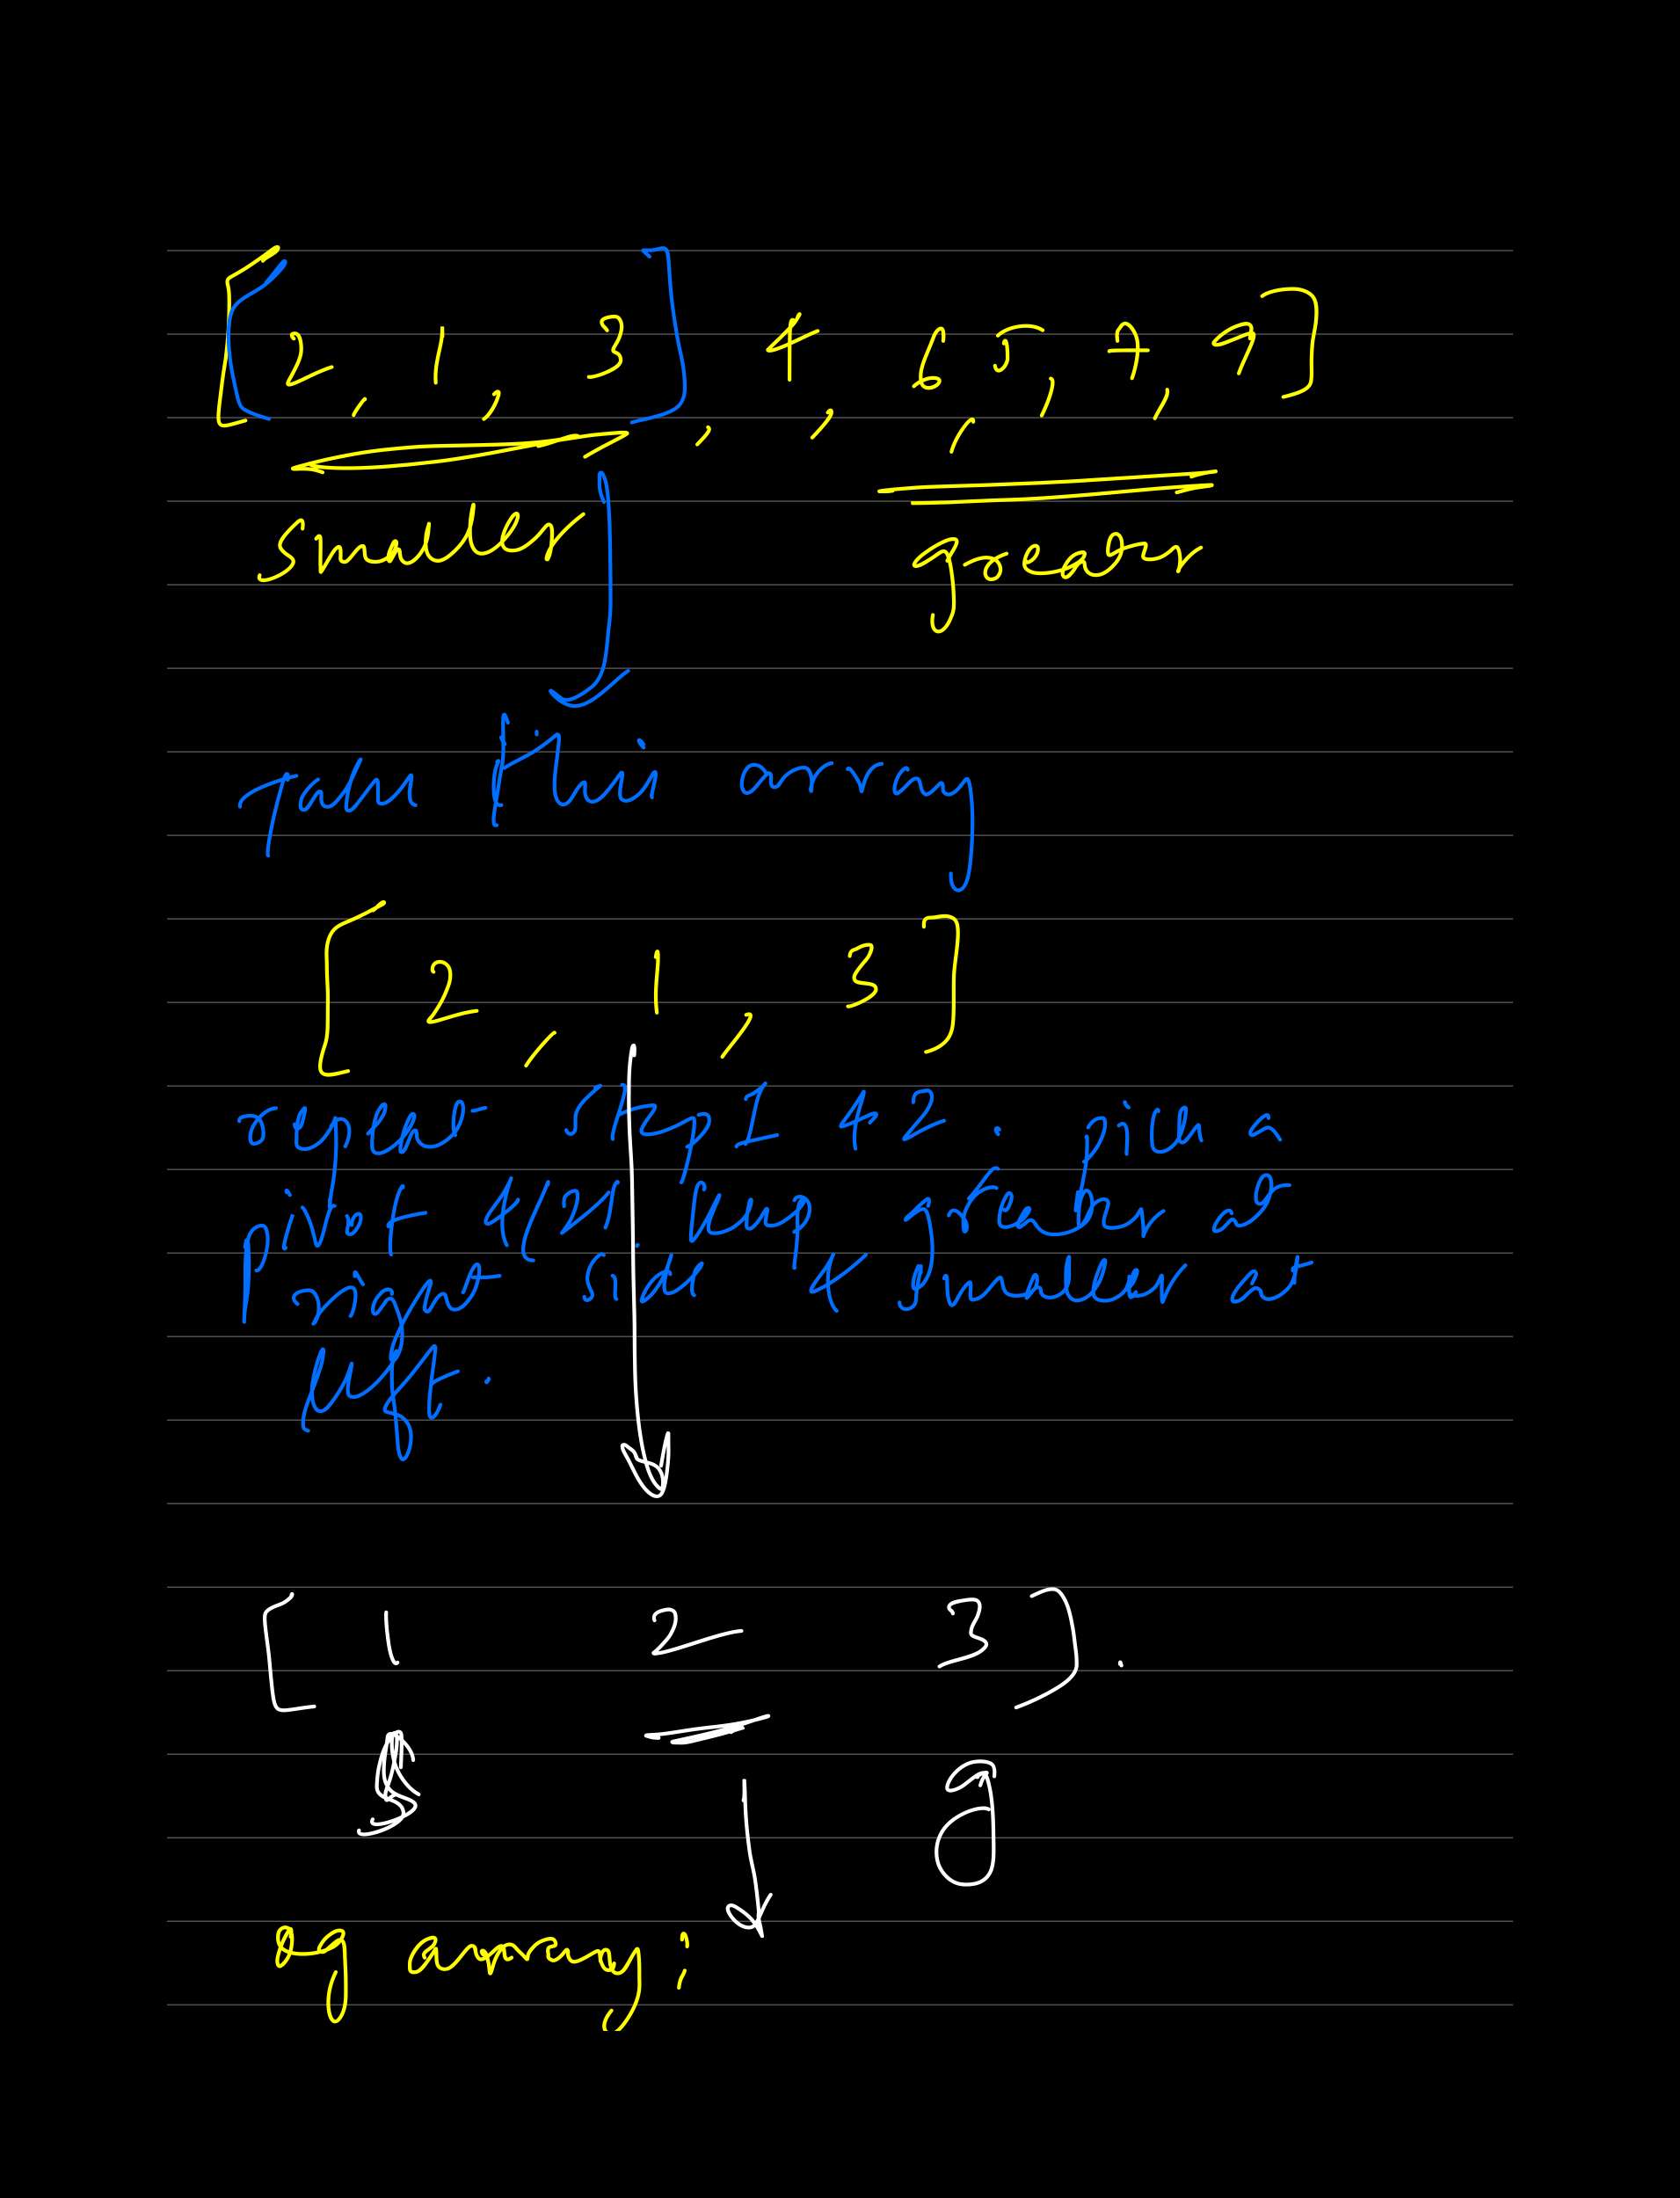 [2, 1, 3], 4, 6, 5, 7, 9]
smaller greater
Take this array
[2, 1, 3]
repeat Step 1 & 2. pick a
pivot 4/21. keep greater at
right side & smaller at
left.
[1 2 3].
s g
eg array: